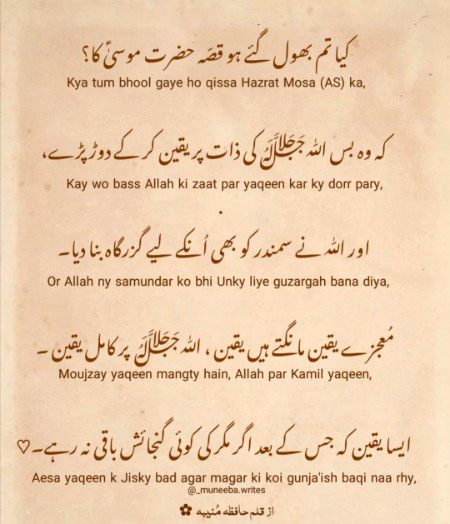 کیا تم بھول گئے ہو قصّہ حضرت موسیٰؑ کا؟
Kya tum bhool gaye ho qissa Hazrat Mosa (AS) ka,
کہ وہ بس اللہ ﷻ کی ذات پر یقین کر کے دوڑ پڑے،
Kay wo bass Allah ki zaat par yaqeen kar ky dorr pary,
اور اللہ نے سمندر کو بھی اُنکے لیے گزرگاہ بنا دیا۔
Or Allah ny samundar ko bhi Unky liye guzargah bana diya,
مُعجزے یقین مانگتے ہیں یقین ، اللہ ﷻ پر کامل یقین ۔
Moujzay yaqeen mangty hain, Allah par Kamil yaqeen,
ایسا یقین کہ جس کے بعد اگر مگر کی کوئی گنجائش باقی نہ رہے۔♡
Aesa yaqeen k Jisky bad agar magar ki koi gunja'ish baqi naa rhy,
@_muneeba.writes
از قلم حافظہ مُنیبہ ✿